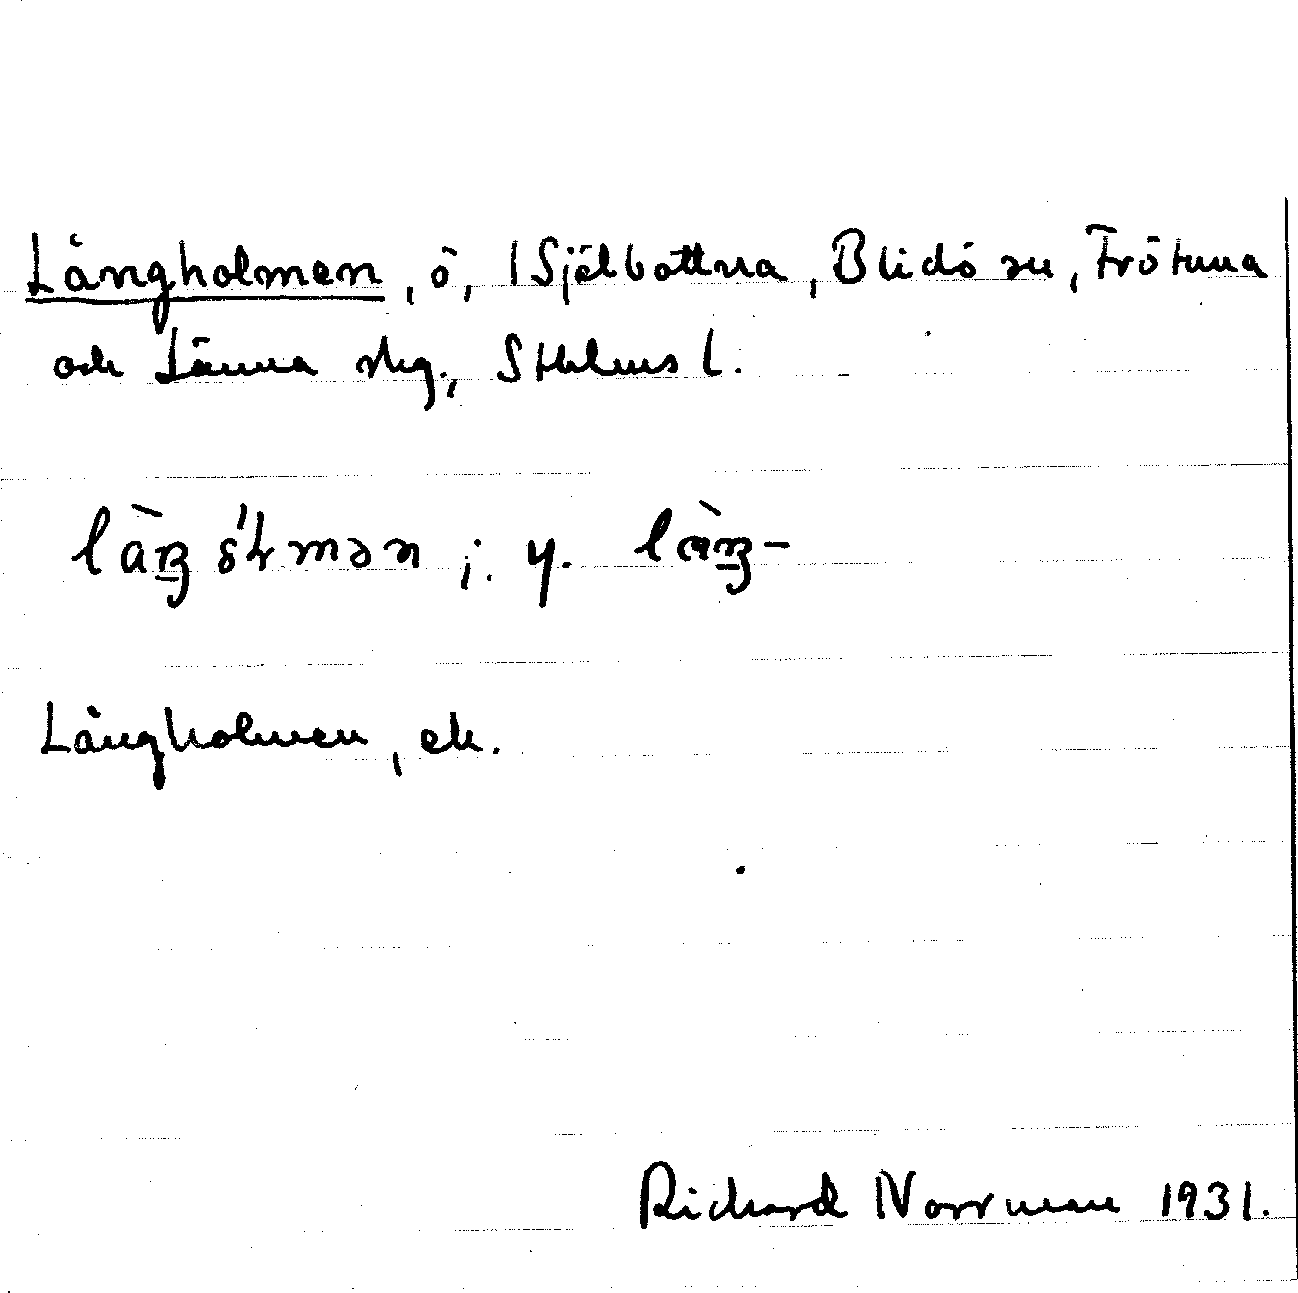 Långholmen, ö, 1 Själbottna, Blidö sn, Frötuna
och Länna skg., Sthlms l.
låŋ ólmən ; y. laŋ-
Långholmen, ek.
Richard Norrman 1931.